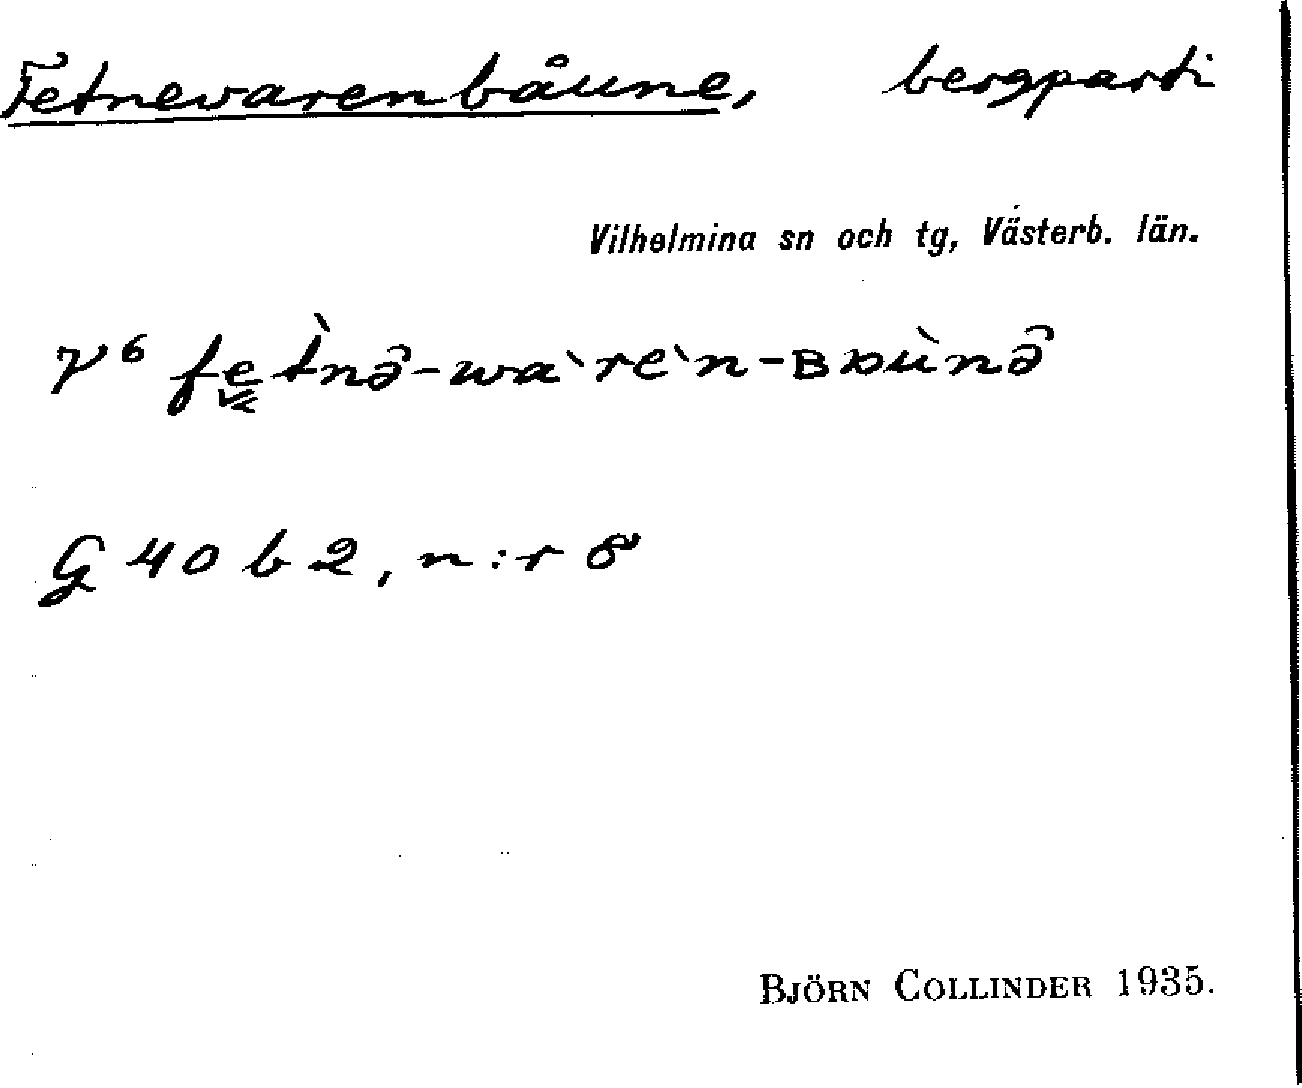 Fetnevarenbåune, bergparti
Vilhelmina sn och tg, Västerb. län.
V⁶ fetnə̂-wa`re`n-ʙɒùnə̂
G 40 b 2, n:r 8
BJÖRN COLLINDER 1935.